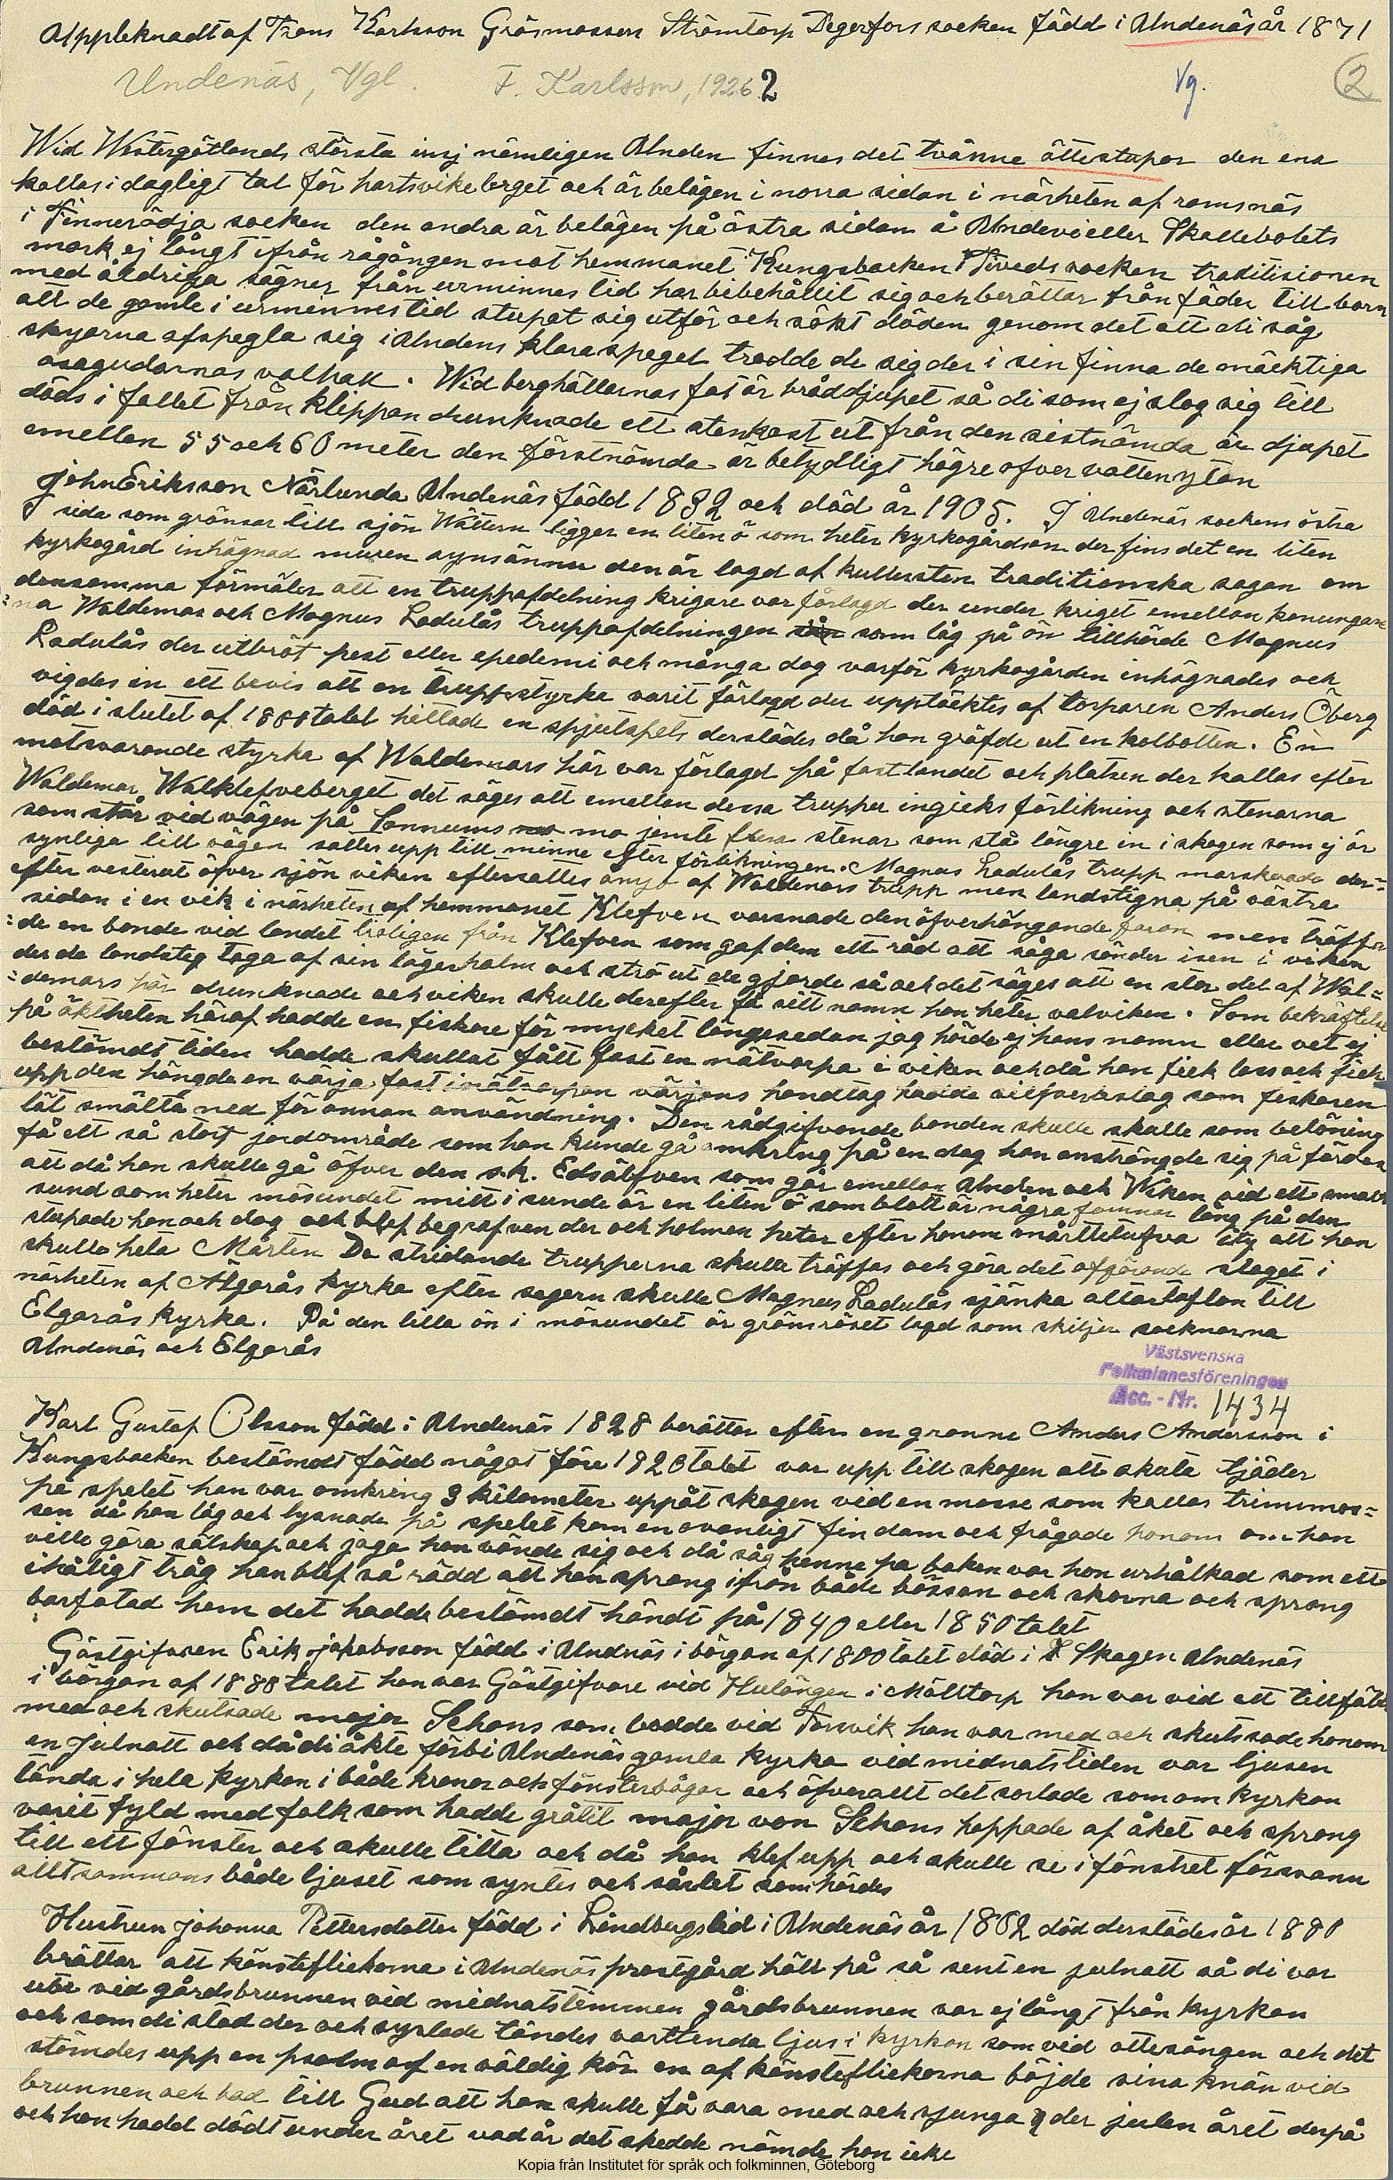 Uppteknadt af Frans Karlsson Gräsmossen Strömtorp Degerfors socken född i Undenäs år 1871
Undenäs, Vgl. F. Karlsson, 1926. 2
Vg.
2
Wid Westergötlands största insj nämligen Unden finnes det tvänne ättestupor den ena
kallas i dagligt tal för hartsvikeberget och är belägen i norra sidan i närheten af ramsnäs
i Finnerödja socken den andra är belägen på östra sidan å Undevi eller Skallebolets
mark ej långt ifrån rågången mot hemmanet Kungsbacken Tiveds socken traditisionen
med åldriga sägner från urminnes tid har bibehållit sig och berättar från fäder till barn
att de gamle i urminnes tid stupat sig utför och sökt döden genom det att di såg
skyarna afspegla sig i Undens klara spegel trodde de sig der i sin finna de mäcktiga
asagudarnas valhall. Wid berghällarnas fot är bråddjupet så di som ej slog sig till
döds i fallet från klippan drunknade ett stenkast ut från den sistnämda är djupet
emellan 55 och 60 meter den förstnämda är betydligt högre ofver vattenytan
John Eriksson Närlunda Undenäs född 1832 och död år 1905. I Undenäs sockens östra
sida som gränsar till sjön Wättern ligger en liten ö som heter kyrkogårdsön der fins det en liten
kyrkogård inhägnad muren syns ännu den är lagd af kullersten traditionska sagan om
densamma förmäler att en truppafdelning krigare var förlagd der under kriget emellan konungar=
=na Waldemar och Magnus Ladulås truppafdelningen som låg på ön tillhörde Magnus
Ladulås der utbröt pest eller epedemi och många dog varför kyrkogården inhägnades och
vigdes in ett bevis att en truppstyrka varit förlagd der upptäcktes af torparen Anders Öberg
död i slutet af 1800 talet hittade en spjutspets derstädes då han gräfde ut en kolbotten. En
motsvarande styrka af Waldemars här var förlagd på fastlandet och platsen der kallas efter
Waldemar Walklefveberget det säges att emellan dessa trupper ingicks förlikning och stenarna
som står vid vägen på Sannums mo jemte flera stenar som stå längre in i skogen som ej är
synliga till vägen sattes upp till minne efter förlikningen. Magnus Ladulås trupp marskerade der=
efter vesterut öfver sjön viken eftersattes ånyo af Waldemars trupp men landstigna på västra
sidan i en vik i närheten af hemmanet Klefven varsnade den öfverhängande faran men träffa=
=de en bonde vid landet troligen från Klefven som gaf dem ett råd att såga sönder isen i viken
der de landsteg taga af sin lägerhalm och strö ut de gjorde så och det säges att en stor del af Wal=
=demars här drunknade och viken skulle derefter få sitt namn han heter valviken. Som bekräftelse
på äktheten häraf hadde en fiskare för mycket längesedan jag hörde ej hans namn eller vet ej
bestämdt tiden hadde skullat fått fast en nätvarpa i viken och då han fick loss och fick
upp den hängde en värja fast i nätvarpan värjans handtag hadde silfverbeslag som fiskaren
lät smälta ned för annan användning. Den rådgifvande bonden skulle som belöning
få ett så stort jordområde som han kunde gå omkring på en dag han ansträngde sig på färden
att då han skulle gå öfver den s.k. Edsälfven som går emellan Unden och Wiken vid ett smalt
sund som heter mösundet mitt i sunde är en liten ö som blott är några famnar lång på den
stupade han och dog och blef begrafven der och holmen heter efter honom mårttetufva ity att han
skulle heta Mårten De stridande trupperna skulle träffas och göra det afgörande slaget i
närheten af Älgarås kyrka efter segern skulle Magnus Ladulås sjänka altartaflan till
Elgarås kyrka. På den lilla ön i mösundet är gränsröset lagd som skiljer socknarna
Undenäs och Elgarås
Västsvenska
Folkminnesföreningen
Acc.-Nr. 1434
Karl Gustaf Olsson född i Undenäs 1828 berätter efter en granne Anders Andersson i
Kungsbacken bestämdt född något före 1820 talet var upp till skogen att skuta tjäder
på spelet han var omkring 3 kilometer uppåt skogen vid en mosse som kallas trimmos=
sen då han låg och lysnade på spelet kom en ovanligt fin dam och frågade honom om han
ville göra sälskap och jaga han vände sig och då såg henne på baken var hon urhålkad som ett
ihåligt tråg han blef så rädd att han sprang ifrån både bössan och skorna och sprang
barfotad hem det hadde bestämdt händt på 1840 eller 1850 talet
Gästgifvaren Erik Jakobsson född i Undnäs i börgan af 1800 talet död i Skagen Undenäs
i börgan af 1880 talet han var Gästgifvare vid Hulängen i Mölltorp han var vid ett tillfälle
med och skutsade major Schans som bodde vid Forsvik han var med och skutsade honom
en julnatt och då di åkte förbi Undenäs gamla kyrka vid midnatstiden var ljusen
tända i hela kyrkan i både kronor och fönsterbågar och öfverallt det sorlade som om kyrkan
varit fyld med folk som hadde gråtit major von Schans hoppade af åket och sprang
till ett fönster och skulle titta och då han klef upp och skulle se i fönstret försvann
alltsammans både ljuset som syntes och sorlet som hördes
Hustrun Johanna Pettersdotter född i Lindbergslid i Undenäs år 1802 död derstädes år 1880
berättar att känsteflickorna i Undenäs prostgård höll på så sent en julnatt så di var
ute vid gårdsbrunnen vid midnatstimmen gårdsbrunnen var ej långt från kyrkan
och som di stod der och syslade tändes varttenda ljus i kyrkan som vid ottesången och det
stämdes upp en psalm af en väldig kör en af känsteflickorna böjde sina knän vid
brunnen och bad till Gud att hon skulle få vara med och sjunga der julen året derpå
och hon hadd dödt under året vad år det skedde nämde hon icke
Kopia från Institutet för språk och folkminnen, Göteborg